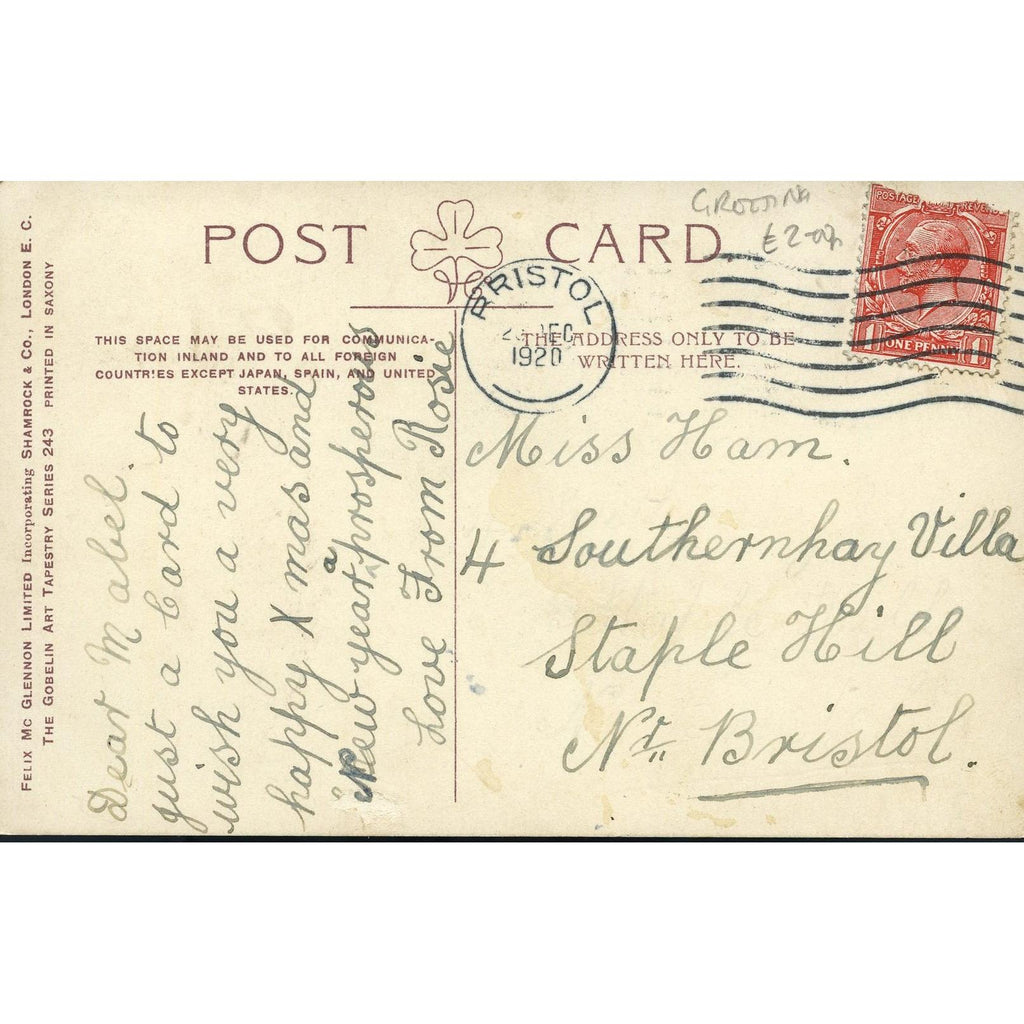 FELIX MC GLENNON LIMITED Incorporating SHAMROCK & CO., LONDON E. C.
THE GOBELIN ART TAPESTRY SERIES 243 PRINTED IN SAXONY
POST CARD.
THIS SPACE MAY BE USED FOR COMMUNICA-
TION INLAND AND TO ALL FOREIGN
COUNTRIES EXCEPT JAPAN, SPAIN, AND UNITED
STATES.
THE ADDRESS ONLY TO BE
WRITTEN HERE.
Dear Mabel.
just a Card to
wish you a very
happy X mas and
a
New year prosperous
Love From Rosie
BRISTOL
DEC
1920
GREETING
£2-
POSTAGE REVENUE
1 ONE PENNY 1
Miss Ham.
4 Southernhay Villa
Staple Hill
Nr. Bristol.